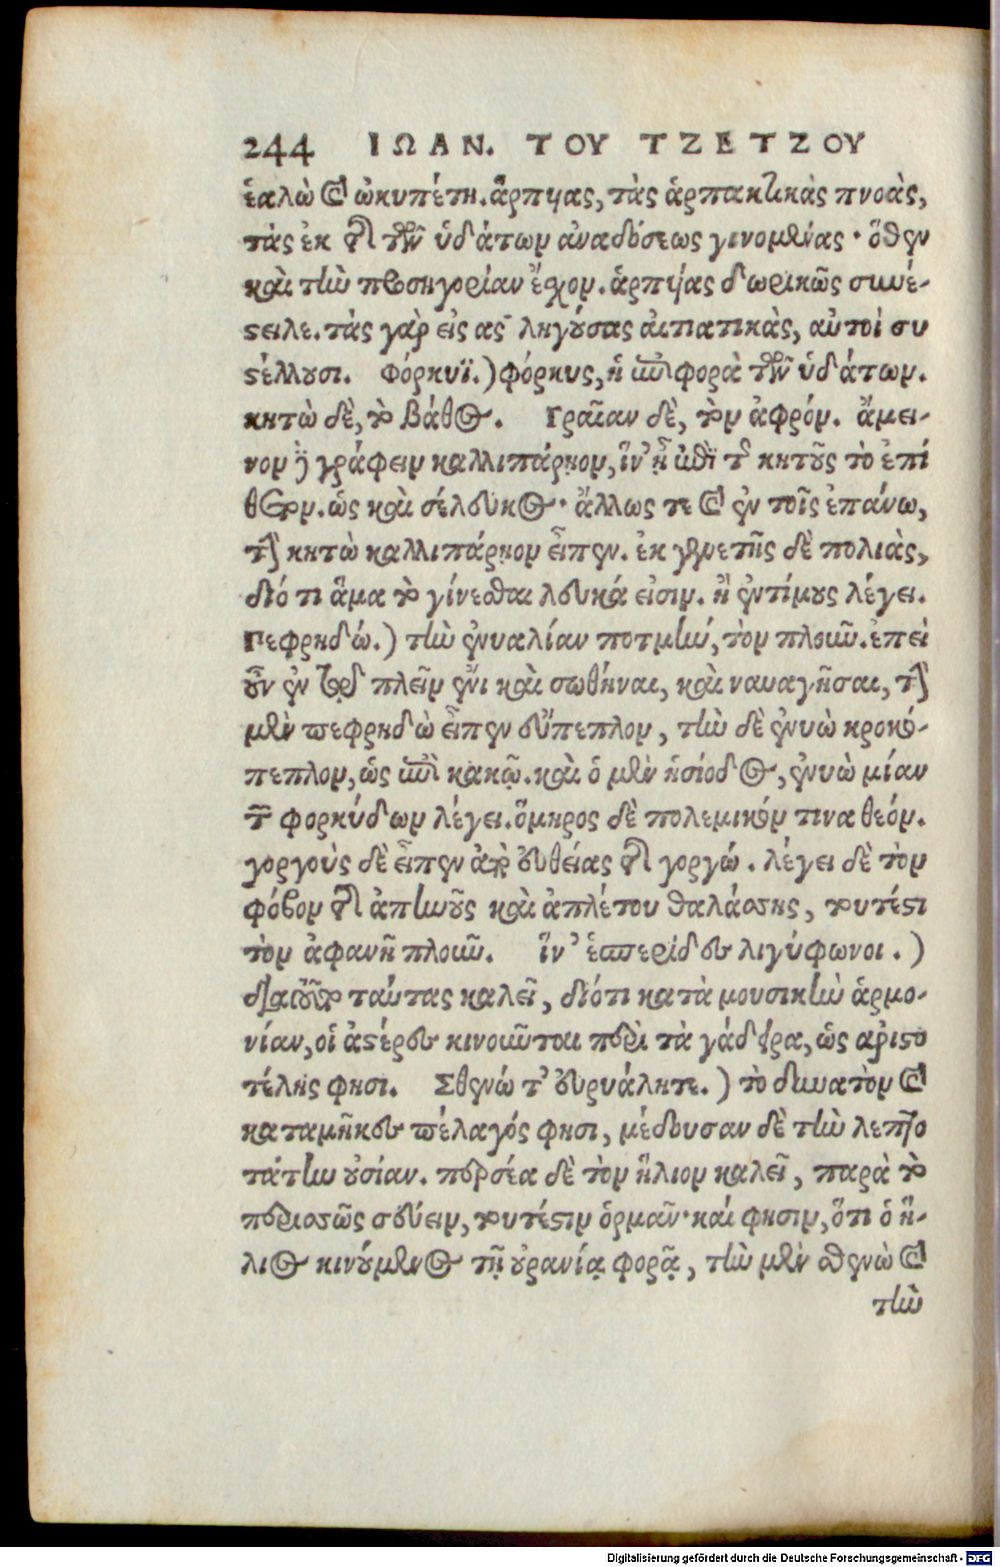 244 ΙΩΑΝ. ΤΟΥ ΤΖΕΤΖΟΥ
ἑαλὼ καὶ ὠκυπέτη. ἅρπυας, τὰς ἁρπακτικὰς πνοὰς,
τὰς ἐκ τῆς τῶν ὑδάτων ἀναδόσεως γινομένας· ὅθεν
καὶ τὴν προσηγορίαν ἔσχον. ἁρπύας δωρικῶς συνέ-
στειλε. τὰς γὰρ εἰς ας ληγούσας αἰτιατικὰς, αὐτοὶ συ
στέλλουσι. Φόρκυϊ.) φόρκυς, ἡ περιφορὰ τῶν ὑδάτων.
κητὼ δὲ, τὸ βάθος. Γραῖαν δὲ, τὸν ἀφρόν. ἄμει-
νον δὲ γράφειν καλλιπάρηον, ἵν' ᾖ ἀπὸ τοῦ κητοῦς τὸ ἐπί
θετον. ὡς καὶ σέλευκος· ἄλλως τε καὶ ἐν τοῖς ἐπάνω,
τὴν κητὼ καλλιπάρηον εἶπεν. ἐκ γενετῆς δὲ πολιὰς,
διό τι ἅμα τὸ γίνεσθαι λευκά εἰσιν. ἢ ἐντίμους λέγει.
Πεφρηδώ.) τὴν ἐνυαλίαν ποτμὴν, τὸν πλοῦν. ἐπεὶ
οὖν ἐν τῷ πλεῖν ἔνι καὶ σωθῆναι, καὶ ναυαγῆσαι, τὴν
μὲν πεφρηδὼ εἶπεν εὔπεπλον, τὴν δὲ ἐνυὼ κροκό-
πεπλον, ὡς ἐπὶ κακῷ. καὶ ὁ μὲν ἡσίοδος, ἐνυὼ μίαν
τῶν φορκύδων λέγει. ὅμηρος δὲ πολεμικόν τινα θεόν.
γοργοὺς δὲ εἶπεν ἀπὸ εὐθείας τῆς γοργώ. λέγει δὲ τὸν
φόβον τῆς ἀπηνοῦς καὶ ἀπλέτου θαλάσσης, τουτέστι
τὸν ἀφανῆ πλοῦν. ἵν' ἑσπερίδες λιγύφωνοι.)
διὰ τοῦτο ταύτας καλεῖ, διότι κατὰ μουσικὴν ἁρμο-
νίαν, οἱ ἀστέρες κινοῦνται περὶ τὰ γάδειρα, ὡς ἀριστο
τέλης φησι. Σθενώ τ' εὐρυάλητε.) τὸ δυνατὸν καὶ
καταμῆκες πέλαγός φησι, μέδουσαν δὲ τὴν λεπτο
τάτην οὐσίαν. περσέα δὲ τὸν ἥλιον καλεῖ, παρὰ τὸ
περισσῶς σεύειν, τουτέστιν ὁρμᾶν· καί φησιν, ὅτι ὁ ἥ-
λιος κινούμενος τῇ οὐρανίᾳ φορᾷ, τὴν μὲν σθενὼ καὶ
τὴν
Digitalisierung gefördert durch die Deutsche Forschungsgemeinschaft - DFG